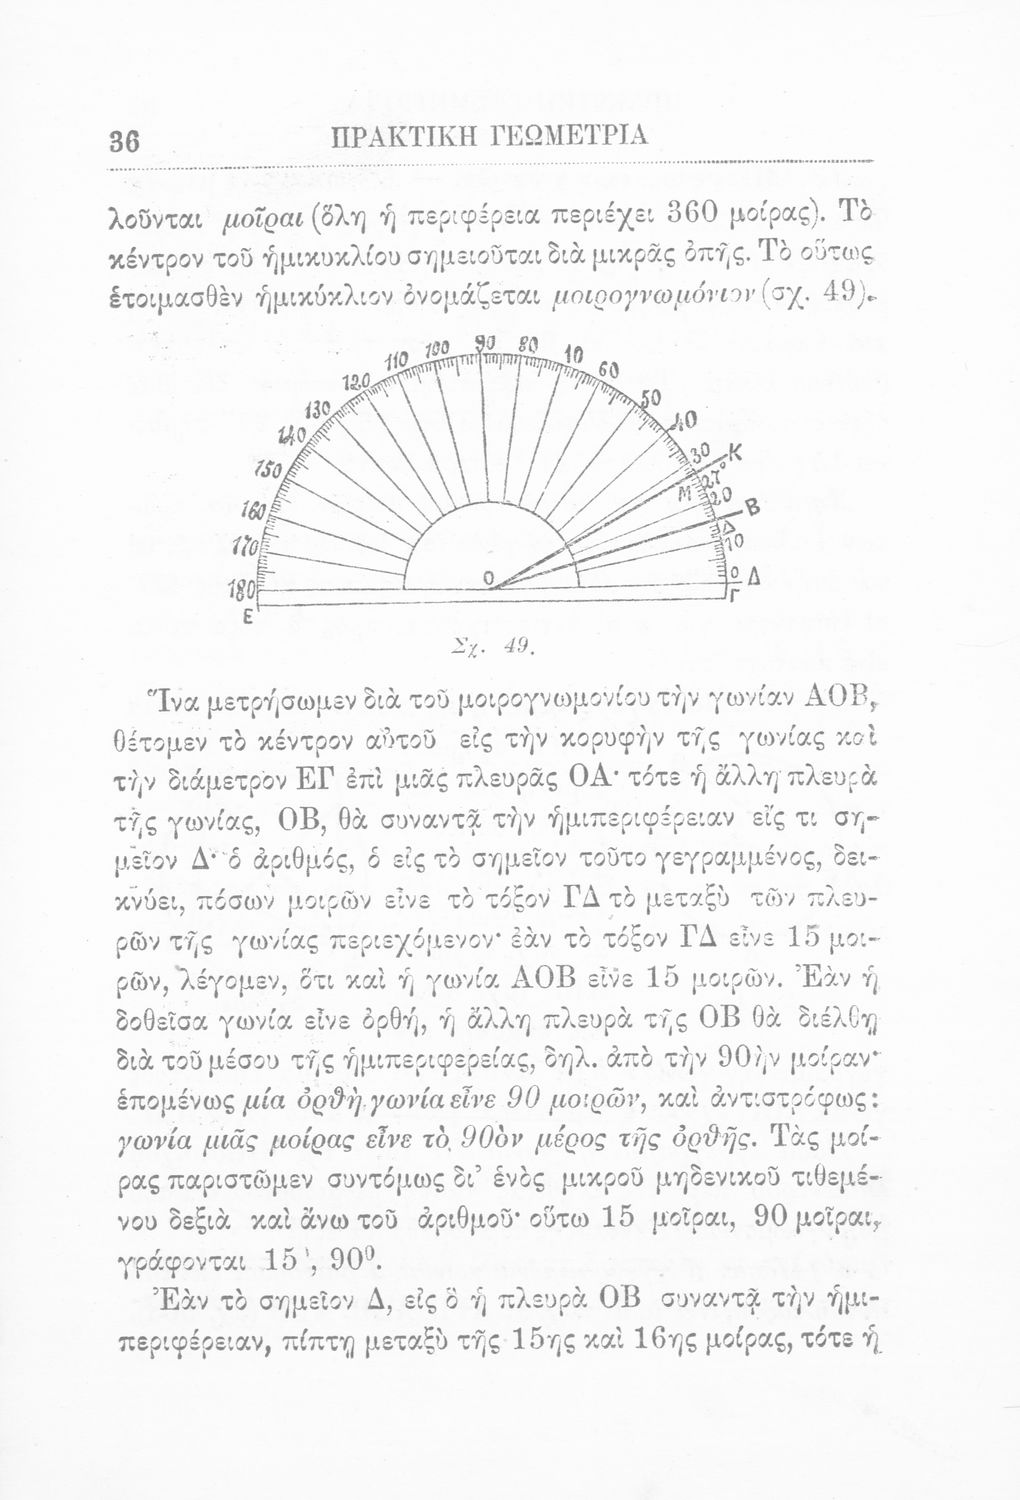 36
ΠΡΑΚΤΙΚΗ ΓΕΩΜΕΤΡΙΑ
λοῦνται μοῖραι (ὅλη ἡ περιφέρεια περιέχει 360 μοίρας). Τὸ
κέντρον τοῦ ἡμικυκλίου σημειοῦται διὰ μικρᾶς ὀπῆς. Τὸ οὕτως
ἑτοιμασθὲν ἡμικύκλιον ὀνομάζεται μοιρογνωμόνιον (σχ. 49).
180 170 160 150 140 130 120 110 100 90 80 70 60 50 40 30 27° 20 10 0
Κ
Μ
Β
Δ
Ο
Δ
Γ
Ε
Σχ. 49.
Ἵνα μετρήσωμεν διὰ τοῦ μοιρογνωμονίου τὴν γωνίαν ΑΟΒ,
θέτομεν τὸ κέντρον αὐτοῦ εἰς τὴν κορυφὴν τῆς γωνίας καὶ
τὴν διάμετρον ΕΓ ἐπὶ μιᾶς πλευρᾶς ΟΑ· τότε ἡ ἄλλη πλευρὰ
τῆς γωνίας, ΟΒ, θὰ συναντᾷ τὴν ἡμιπεριφέρειαν εἴς τι ση-
μεῖον Δ· ὁ ἀριθμός, ὁ εἰς τὸ σημεῖον τοῦτο γεγραμμένος, δει-
κνύει, πόσων μοιρῶν εἶνε τὸ τόξον ΓΔ τὸ μεταξὺ τῶν πλευ-
ρῶν τῆς γωνίας περιεχόμενον· ἐὰν τὸ τόξον ΓΔ εἶνε 15 μοι-
ρῶν, λέγομεν, ὅτι καὶ ἡ γωνία ΑΟΒ εἶνε 15 μοιρῶν. Ἐὰν ἡ
δοθεῖσα γωνία εἶνε ὀρθή, ἡ ἄλλη πλευρὰ τῆς ΟΒ θὰ διέλθῃ
διὰ τοῦ μέσου τῆς ἡμιπεριφερείας, δηλ. ἀπὸ τὴν 90ὴν μοίραν·
ἑπομένως μία ὀρθὴ γωνία εἶνε 90 μοιρῶν, καὶ ἀντιστρόφως:
γωνία μιᾶς μοίρας εἶνε τὸ 90ὸν μέρος τῆς ὀρθῆς. Τὰς μοί-
ρας παριστῶμεν συντόμως δι' ἑνὸς μικροῦ μηδενικοῦ τιθεμέ-
νου δεξιὰ καὶ ἄνω τοῦ ἀριθμοῦ· οὕτω 15 μοῖραι, 90 μοῖραι,
γράφονται 15°, 90⁰.
Ἐὰν τὸ σημεῖον Δ, εἰς ὃ ἡ πλευρὰ ΟΒ συναντᾷ τὴν ἡμι-
περιφέρειαν, πίπτῃ μεταξὺ τῆς 15ης καὶ 16ης μοίρας, τότε ἡ